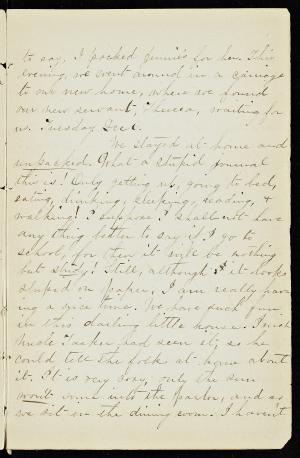 to say, I packed Jennie's for her. This
evening, we went around in a carriage
to our new home, where we found
our new servant, Theresa, waiting for
us. Tuesday Dec 1.
We stayed at home and
unpacked. What a stupid journal
this is! Only getting up, going to bed,
eating, drinking, sleeping, reading, &
walking! I suppose I shall not have
any thing better to say if I go to
school, for then it will be nothing
but study! Still, although it looks
stupid on paper, I am really hav-
ing a nice time. We have such fun
in this darling little house. I wish
Uncle had seen it, so he
could tell the folks at home about
it. It is very cosy, only the sun
won't come into the parlor, and as
we sit in the dining room. I haven't